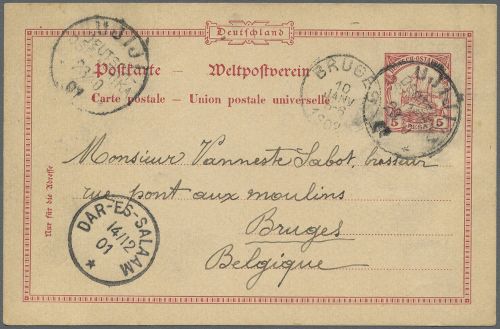 Deutschland
Postkarte — Weltpostverein
Carte postale — Union postale universelle
UJIJI
BRUGES
10
JANV
1902
UJIJI
5 5
Nur für die Adresse
Monsieur Vanneste Sabot, brasseur
rue pont aux moulins
Bruges
Belgique
DAR-ES-SALAAM
14/12
01
*